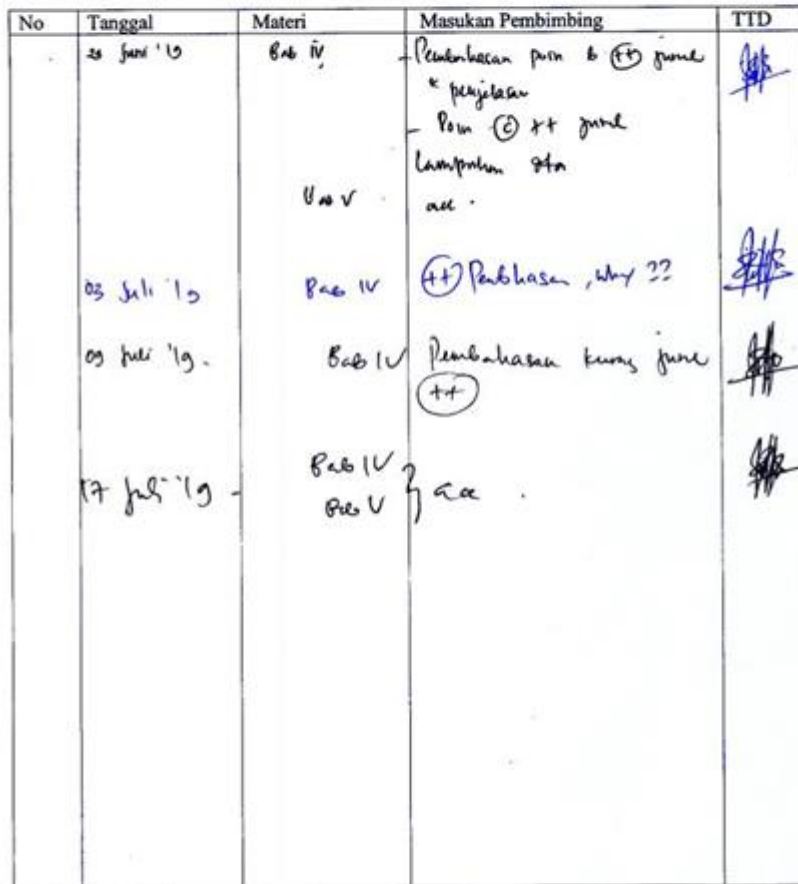 No Tanggal Materi Masukan Pembimbing TTD
Juni '19 Bab IV - Pembahasan poin b ++
* penjelasan
- Poin c ++
Lampirkan
Bab V acc.
03 Juli '19 Bab IV ++ Pembhasan, why ??
09 Juli '19. Bab IV Pembahasan kurang
++
17 Juli '19 - Bab IV
Bab V } acc.